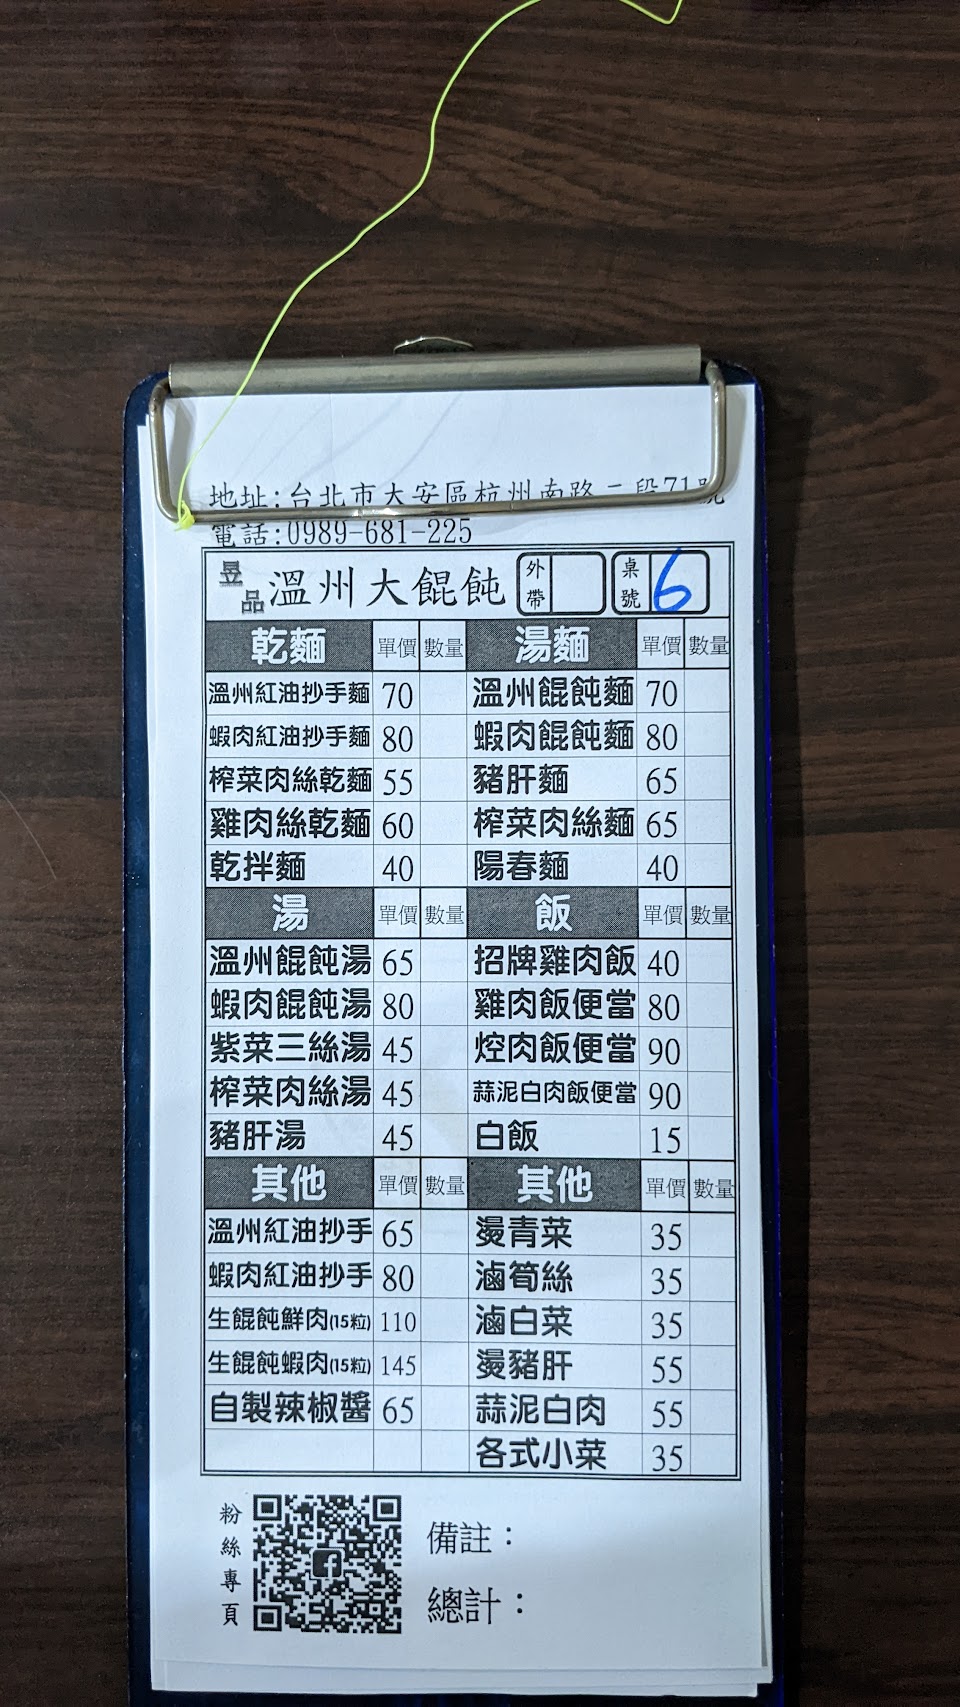 地址:台北市大安區杭州南路二段71號
電話:0989-681-225
昱品 溫州大餛飩 外帶 桌號 6
乾麵 單價 數量 湯麵 單價 數量
溫州紅油抄手麵 70 溫州餛飩麵 70
蝦肉紅油抄手麵 80 蝦肉餛飩麵 80
榨菜肉絲乾麵 55 豬肝麵 65
雞肉絲乾麵 60 榨菜肉絲麵 65
乾拌麵 40 陽春麵 40
湯 單價 數量 飯 單價 數量
溫州餛飩湯 65 招牌雞肉飯 40
蝦肉餛飩湯 80 雞肉飯便當 80
紫菜三絲湯 45 焢肉飯便當 90
榨菜肉絲湯 45 蒜泥白肉飯便當 90
豬肝湯 45 白飯 15
其他 單價 數量 其他 單價 數量
溫州紅油抄手 65 燙青菜 35
蝦肉紅油抄手 80 滷筍絲 35
生餛飩鮮肉(15粒) 110 滷白菜 35
生餛飩蝦肉(15粒) 145 燙豬肝 55
自製辣椒醬 65 蒜泥白肉 55
各式小菜 35
粉絲專頁
備註：
總計：